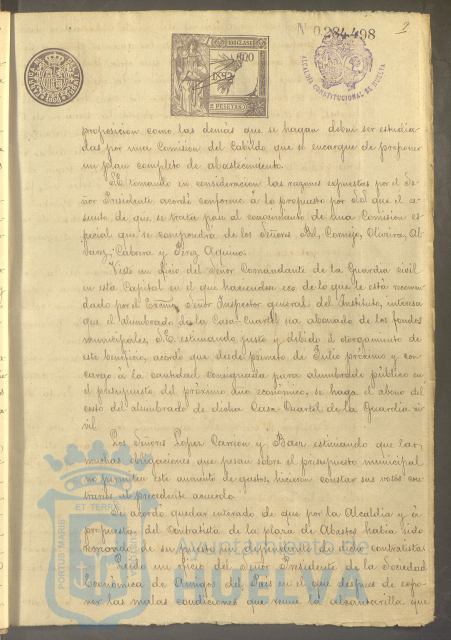 Nº 0.284.498
2
ALCALDIA CONSTITUCIONAL DE HUELVA
1892
2 PESETAS
proposicion como las demás que se hagan deben ser estudia-
das por una Comision del Cabildo que se encargue de proponer
un plan completo de abastecimiento.
S.E. tomando en consideracion las razones expuestas por el Se-
ñor Presidente acordó conforme á lo propuesto por S.S. que el a-
sunto de que se trata pase al conocimiento de una Comision es-
pecial que se compondrá de los Señores Bel, Cornejo, Oliveira, Al-
varez, Cabrera y Perez Aquino.
Visto un oficio del Señor Comandante de la Guardia civil
en esta Capital en el que haciendose eco de lo que le está recomen-
dado por el Excmo. Señor Inspector general del Instituto, interesa
que el alumbrado de la Casa-Cuartel sea abonado de los fondos
municipales, S.E. estimando justo y debido el otorgamiento de
este beneficio, acordó que desde primero de Julio próximo y con
cargo á la cantidad consignada para alumbrado público en
el presupuesto del próximo año económico, se haga el abono del
costo del alumbrado de dicha Casa-Cuartel de la Guardia ci-
vil.
Los Señores Lopez Carrion y Baez estimando que las
muchas obligaciones que pesan sobre el presupuesto municipal
no permiten este aumento de gastos, hicieron constar sus votos con-
trarios al precedente acuerdo.
Se acordó quedar enterado de que por la Alcaldía y á
propuesta del contratista de la plaza de Abastos habia sido
removido de su puesto un dependiente de dicho contratista.
Leido un oficio del Señor Presidente de la Sociedad
Económica de Amigos del Pais en el que despues de expo-
ner las malas condiciones que reune la alcantarilla que
PORTUS MARIS
ET TERRE
Ayuntamiento de
HUELVA